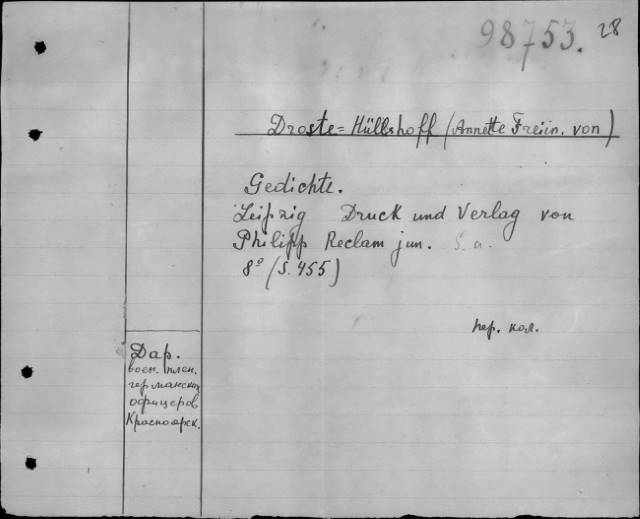 98753. 28
Droste=Hüllshoff (Annette Freiin. von)
Gedichte.
Leipzig Druck und Verlag von
Philipp Reclam jun. S. a.
8º (S. 455)
пер. кол.
Дар.
воен. плен.
германских
офицеров
Красноярск.